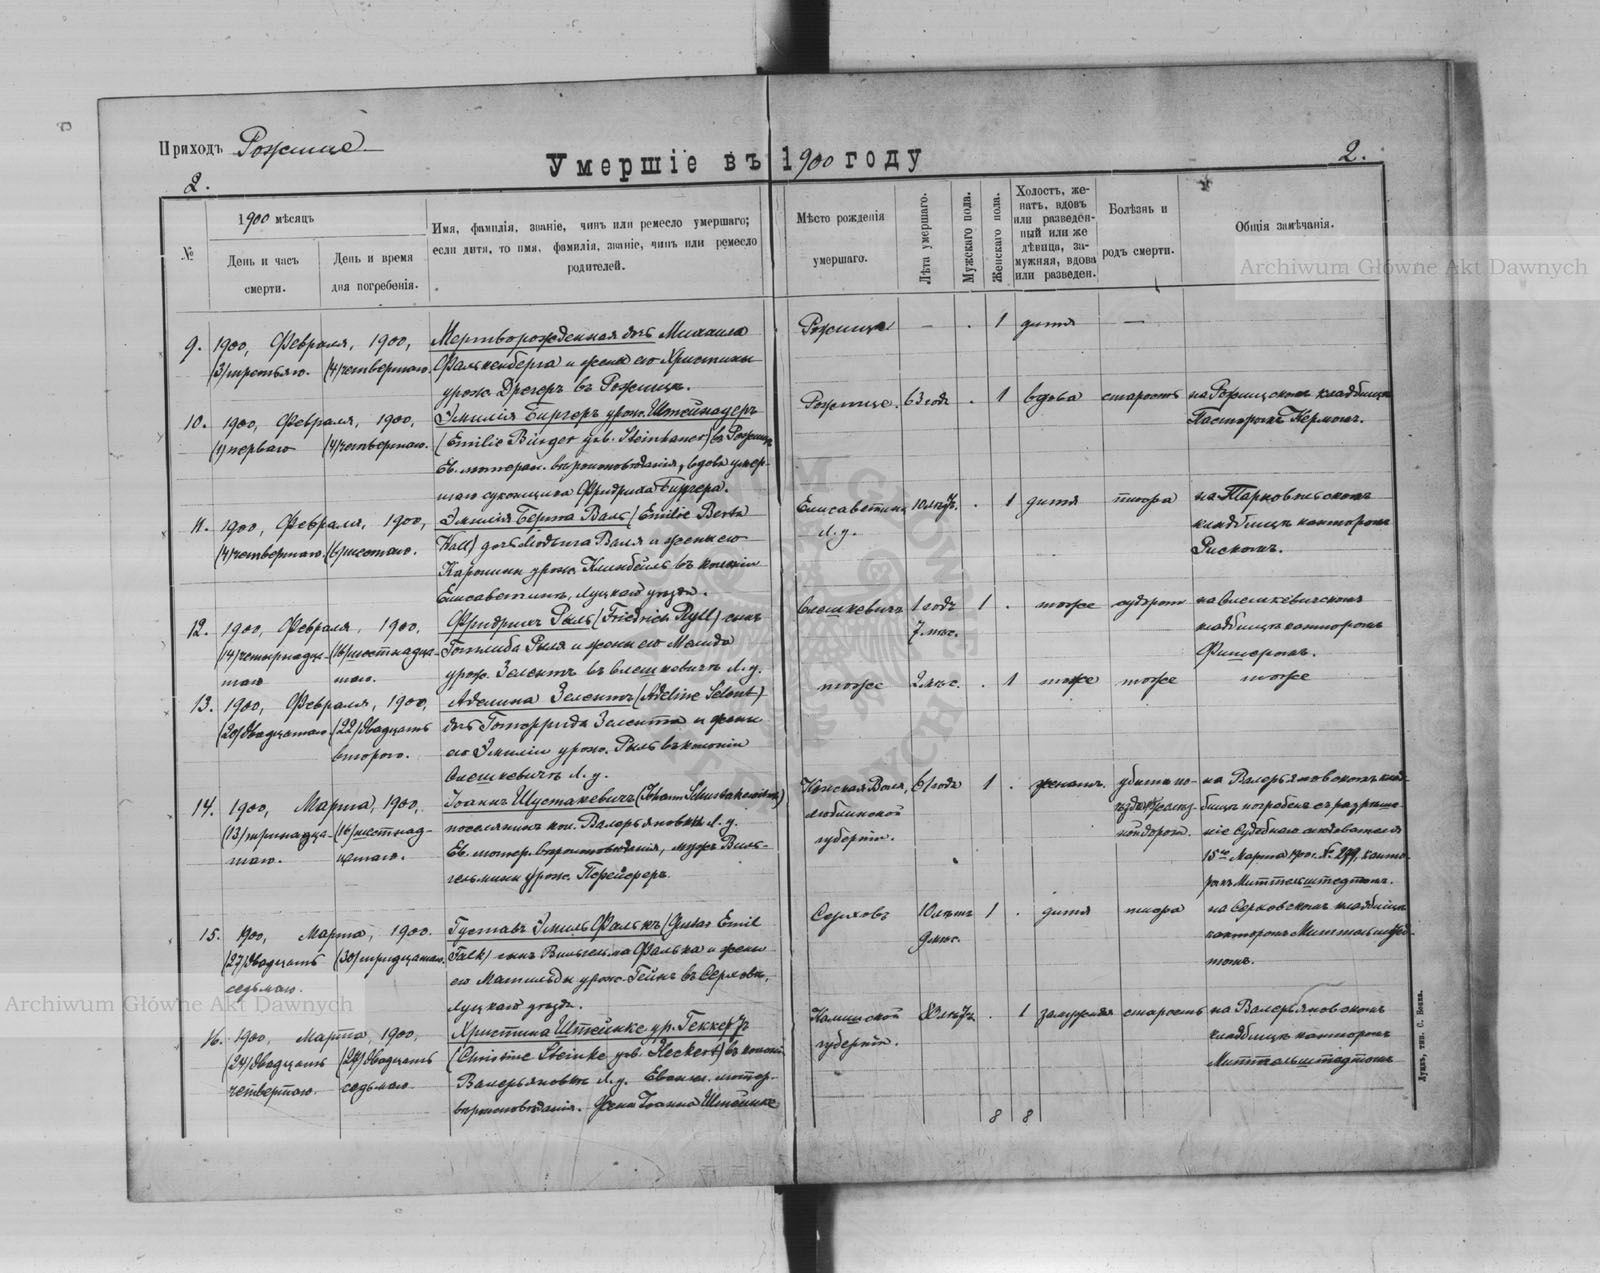 Приходъ Рожище
2.
Умершіе въ 1900 году
2.
№
1900 мѣсяцъ
День и часъ
смерти.
День и время
дня погребенія.
Имя, фамилія, званіе, чинъ или ремесло умершаго;
если дитя, то имя, фамилія, званіе, чинъ или ремесло
родителей.
Мѣсто рожденія
умершаго.
Лѣта умершаго.
Мужскаго пола.
Женскаго пола.
Холостъ, же-
натъ, вдовъ
или разведен-
ный или же
дѣвица, за-
мужняя, вдова
или разведен.
Болѣзнь и
родъ смерти.
Общія замѣчанія.
Archiwum Główne Akt Dawnych
9. 1900, Февраля, 1900, Мертворожденная дочь Михаила Рожище — . 1 дитя —
(3) третьяго. (4) четвертаго. Фалькенберга и жены его Христины
урож. Дрегеръ въ Рожищѣ.
10. 1900, Февраля, 1900, Эмилія Биргеръ урож. Штейнгауеръ Рожище. 63 года . 1 вдова старость на Рожищскомъ кладбищѣ
(1) перваго (4) четвертаго. (Emilie Birger geb. Steinhauer) въ Рожищѣ Пасторомъ Керномъ.
Ев. лютеран. вѣроисповѣданія, вдова умер-
шаго суконщика Фридриха Биргера.
11. 1900, Февраля, 1900, Эмилія Берта Валь (Emilie Berta Елисаветинъ 10 . 1 дитя на Тарновольскомъ
(4) четвертаго. (6) шестаго. Wall) дочь Людвига Валя и жены его Л. у. кладбищѣ канторомъ
Каролины урож. Климбейль въ колоніи Рискомъ.
Елисаветинъ, Луцкаго уѣзда.
12. 1900, Февраля, 1900, Фридрихъ Рыль (Friedrich Ryll) сынъ Олешкевичъ 1 годъ 1 . тоже судороги на Олешкевичскомъ
(14) четырнадца- (16) шестнадца- Готлиба Рыля и жены его 7 мѣс. кладбищѣ канторомъ
таго таго. урож. Зелентъ въ Олешкевичѣ Л. у. Фишеромъ.
13. 1900, Февраля, 1900, Аделина Зелентъ (Adeline Selent) тоже 2 мѣс. . 1 тоже тоже тоже
(20) двадцатаго (22) двадцать дочь Готфрида Зелента и жены
втораго. его Эмиліи урож. Рыль въ колоніи
Олешкевичъ Л. у.
14. 1900, Марта, 1900, Іоаннъ Шустакевичъ (Johann Schustakewitsch) Воля, 61 годъ 1 . женатъ на Валерьяновскомъ клад-
(13) тринадца- (16) шестнад- поселянинъ кол. Валерьяновки Л. у. Люблинской бищѣ погребенъ съ разрѣше-
таго. цатаго. Ев. лютер. вѣроисповѣданія, мужъ Виль- губерніи. нія Судебнаго слѣдователя
гельмины урож. 15го Марта 1900 г. № 279, канто-
ромъ Миттельштедтомъ.
15. 1900, Марта, 1900. Густавъ Эмиль Фалькъ (Gustav Emil Серховъ 10 лѣтъ 1 . дитя на Серховскомъ кладбищѣ
(27) двадцать (30) тридцатаго. Falk) сынъ Вильгельма Фалька и жены 9 мѣс. канторомъ Миттельштед-
седьмаго. его Матильды урож. Гейнъ въ Серховѣ, томъ.
Луцкаго уѣзда.
Archiwum Główne Akt Dawnych
16. 1900, Марта, 1900, Христина Штейнке ур. Геккертъ Калишской . 1 замужняя старость на Валерьяновскомъ
(24) двадцать (27) двадцать (Christine Steinke geb. Heckert) въ колоніи губерніи. кладбищѣ канторомъ
четвертаго. седьмаго. Валерьяновкѣ Л. у. Еванг. лютер. Миттельштедтомъ
вѣроисповѣданія. Жена Іоанна Штейнке
8 8
Луцкъ, тип. С. Бокса.